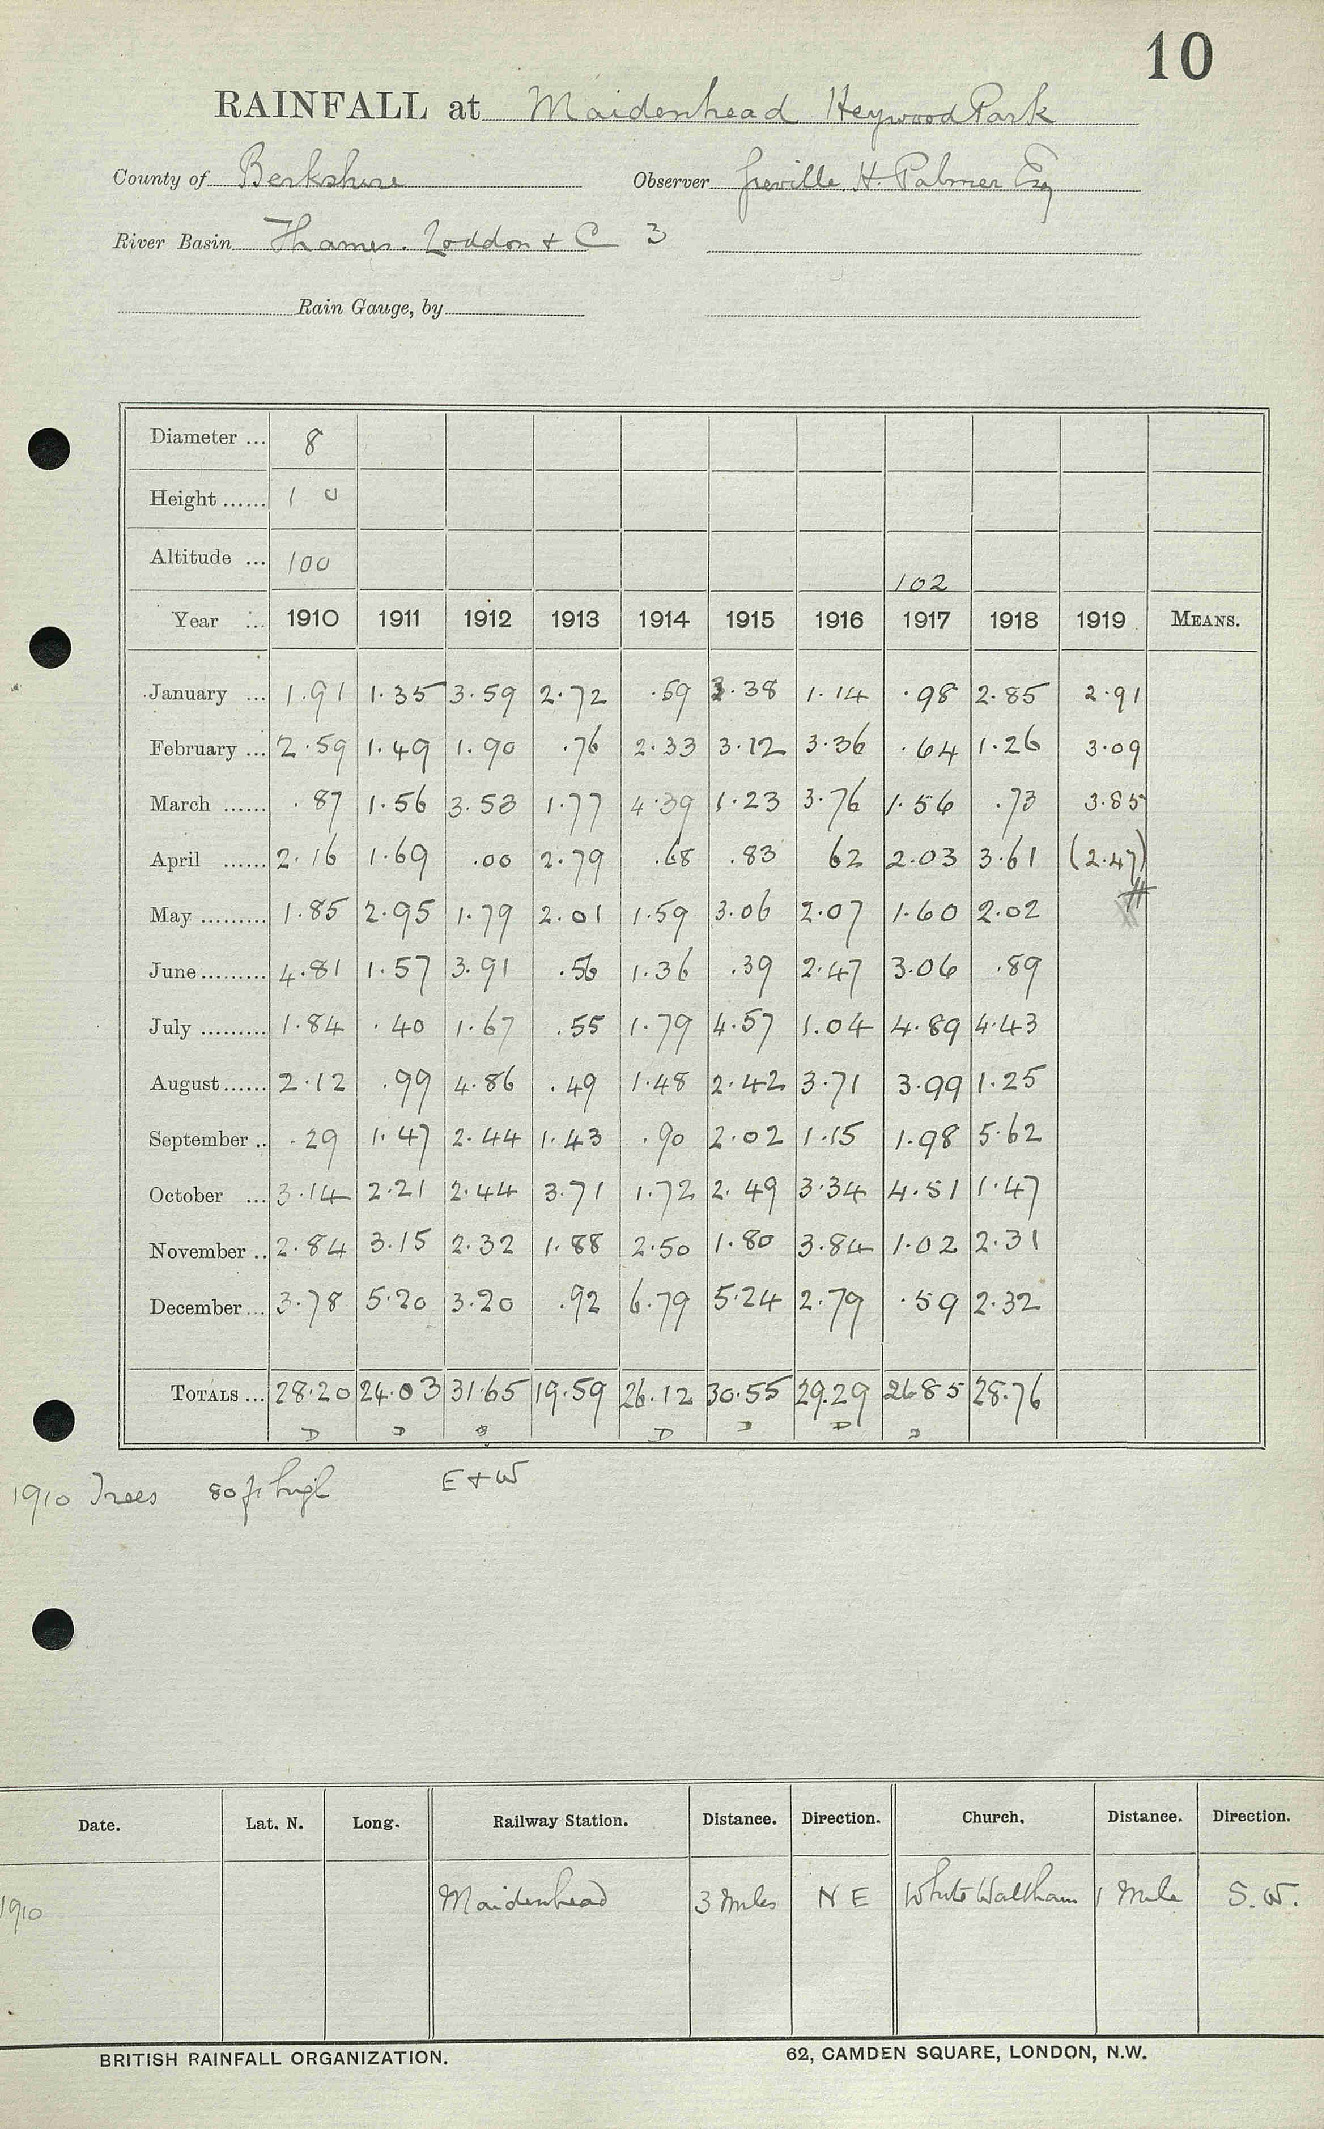 10
RAINFALL at Maidenhead Heywood Park
County of Berkshire Observer Greville H. Palmer Esq
River Basin Thames. Loddon & C 3
Rain Gauge, by
Diameter ... 8
Height ...... 1 0
Altitude ... 100 102
Year ... 1910 1911 1912 1913 1914 1915 1916 1917 1918 1919 MEANS.
January ... 1.91 1.35 3.59 2.72 .59 3.38 1.14 .98 2.85 2.91
February ... 2.59 1.49 1.90 .76 2.33 3.12 3.36 .64 1.26 3.09
March ...... .87 1.56 3.53 1.77 4.39 1.23 3.76 1.56 .73 3.85
April ...... 2.16 1.69 .00 2.79 .68 .83 62 2.03 3.61 (2.47)
May ......... 1.85 2.95 1.79 2.01 1.59 3.06 2.07 1.60 2.02
June ......... 4.81 1.57 3.91 .56 1.36 .39 2.47 3.06 .89
July ......... 1.84 .40 1.67 .55 1.79 4.57 1.04 4.89 4.43
August ...... 2.12 .99 4.86 .49 1.48 2.42 3.71 3.99 1.25
September .. .29 1.47 2.44 1.43 .90 2.02 1.15 1.98 5.62
October ... 3.14 2.21 2.44 3.71 1.72 2.49 3.34 4.51 1.47
November .. 2.84 3.15 2.32 1.88 2.50 1.80 3.84 1.02 2.31
December ... 3.78 5.20 3.20 .92 6.79 5.24 2.79 .59 2.32
TOTALS ... 28.20 24.03 31.65 19.59 26.12 30.55 29.29 26.85 28.76
D D D D D D D
1910 Trees 80 ft high E & W
Date. Lat. N. Long. Railway Station. Distance. Direction. Church. Distance. Direction.
1910 Maidenhead 3 Miles N E White Waltham 1 Mile S.W.
BRITISH RAINFALL ORGANIZATION. 62, CAMDEN SQUARE, LONDON, N.W.